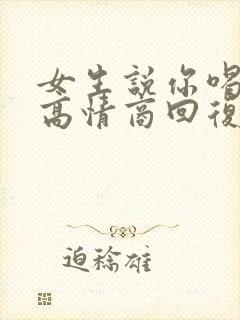 女生說你喝
高情商回復
迫稔雄